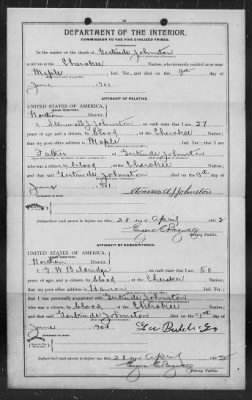 DEPARTMENT OF THE INTERIOR,
COMMISSION TO THE FIVE CIVILIZED TRIBES.
In the matter of the death of Gertrude Johnston
a citizen of the Cherokee Nation, who formerly resided at or near
Maple, Ind. Ter., and died on the 9th day of
June, 1901
AFFIDAVIT OF RELATIVE.
UNITED STATES OF AMERICA,
Northern District.
I, Stonewall J Johnston, on oath state that I am 29
years of age and a citizen, by blood, of the Cherokee Nation;
that my post office address is Maple, Ind. Ter.; that I am
Father of Gertrude Johnston
who was a citizen, by blood, of the Cherokee Nation
and that said Gertrude Johnston died on the 9th day of
June, 1901
Stonewall J Johnston
Subscribed and sworn to before me this 28 day of April 1902
Notary Public.
AFFIDAVIT OF ACQUAINTANCE.
UNITED STATES OF AMERICA,
Northern District.
I, on oath state that I am 50
years of age, and a citizen by blood of the Cherokee Nation;
that my post office address is Ind. Ter.;
that I was personally acquainted with Gertrude Johnston
who was a citizen, by blood, of the Cherokee Nation;
and that said Gertrude Johnston died on the 9th day of
June, 1901
Subscribed and sworn to before me this 28 day of April 1902
Notary Public.